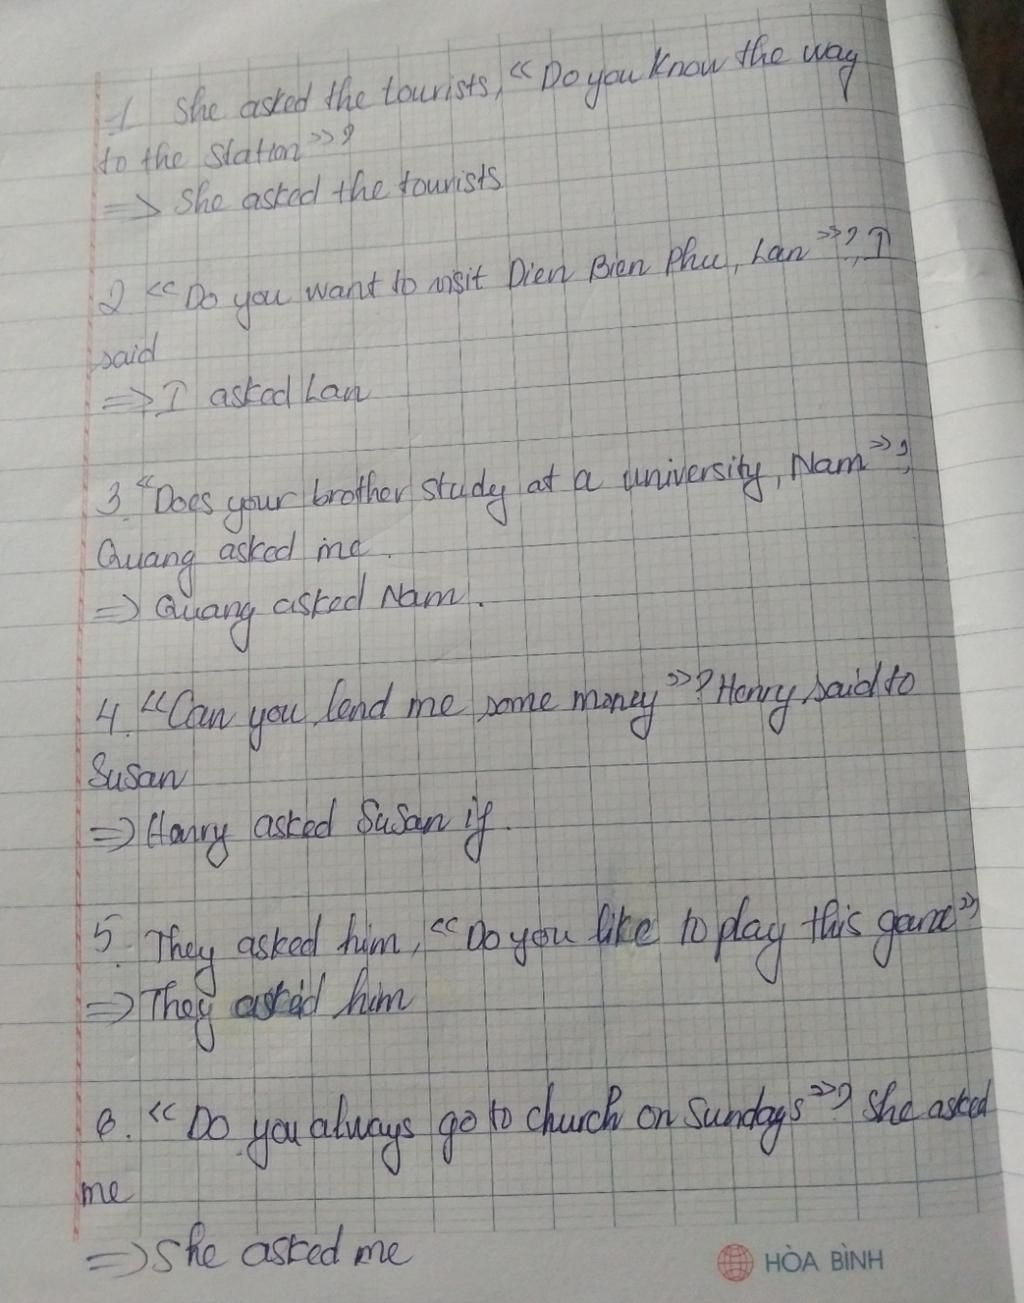 1 She asked the tourists, "Do you know the way
to the station"?
=> She asked the tourists
2 "Do you want to visit Dien Bien Phu, Lan"?, I
said
=> I asked Lan
3. "Does your brother study at a university, Nam"?
Quang asked me.
=> Quang asked Nam.
4. "Can you lend me some money"? Henry said to
Susan
=> Henry asked Susan if.
5. They asked him, "Do you like to play this game"
=> They asked him
6. "Do you always go to church on Sundays"? She asked
me
=> She asked me
HÒA BÌNH